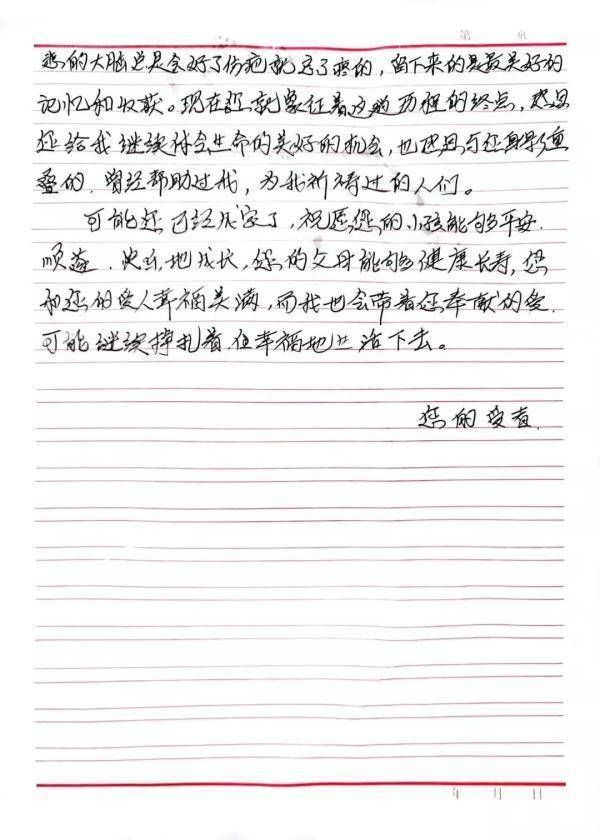 第 页
您的大脑总是会好了伤疤就忘了疼的，留下来的是最美好的
记忆和收获。现在您就象征着这趟历程的终点，感恩
您给我继续体会生命的美好的机会，也把恩与您身影重
叠的、曾经帮助过我，为我祈祷过的人们。
可能您已经成家了，祝愿您的小孩能够平安
顺遂、快乐地成长，您的父母能够健康长寿，您
和您的爱人幸福美满，而我也会带着您奉献的爱，
可能继续挣扎着但幸福地生活下去。
您的受者
年 月 日